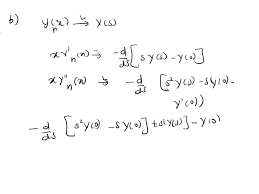 b) y_n(x) →^L Y(s)
x y'_n(x) → -d/ds [s Y(s) - Y(0)]
x y''_n(x) → -d/ds [s² Y(s) - s Y(0) -
y'(0))
- d/ds [s² Y(s) - s Y(0)] + s(Y(s)) - Y(0)